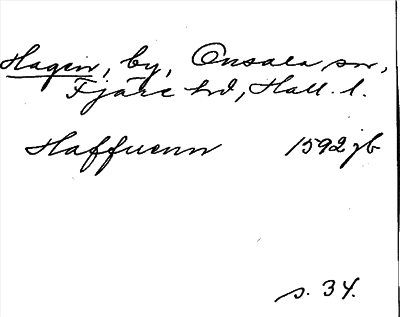 Hagen, by, Onsala sn,
Fjäre hd, Hall. l.
Haffuenn 1592 jb
s. 34.